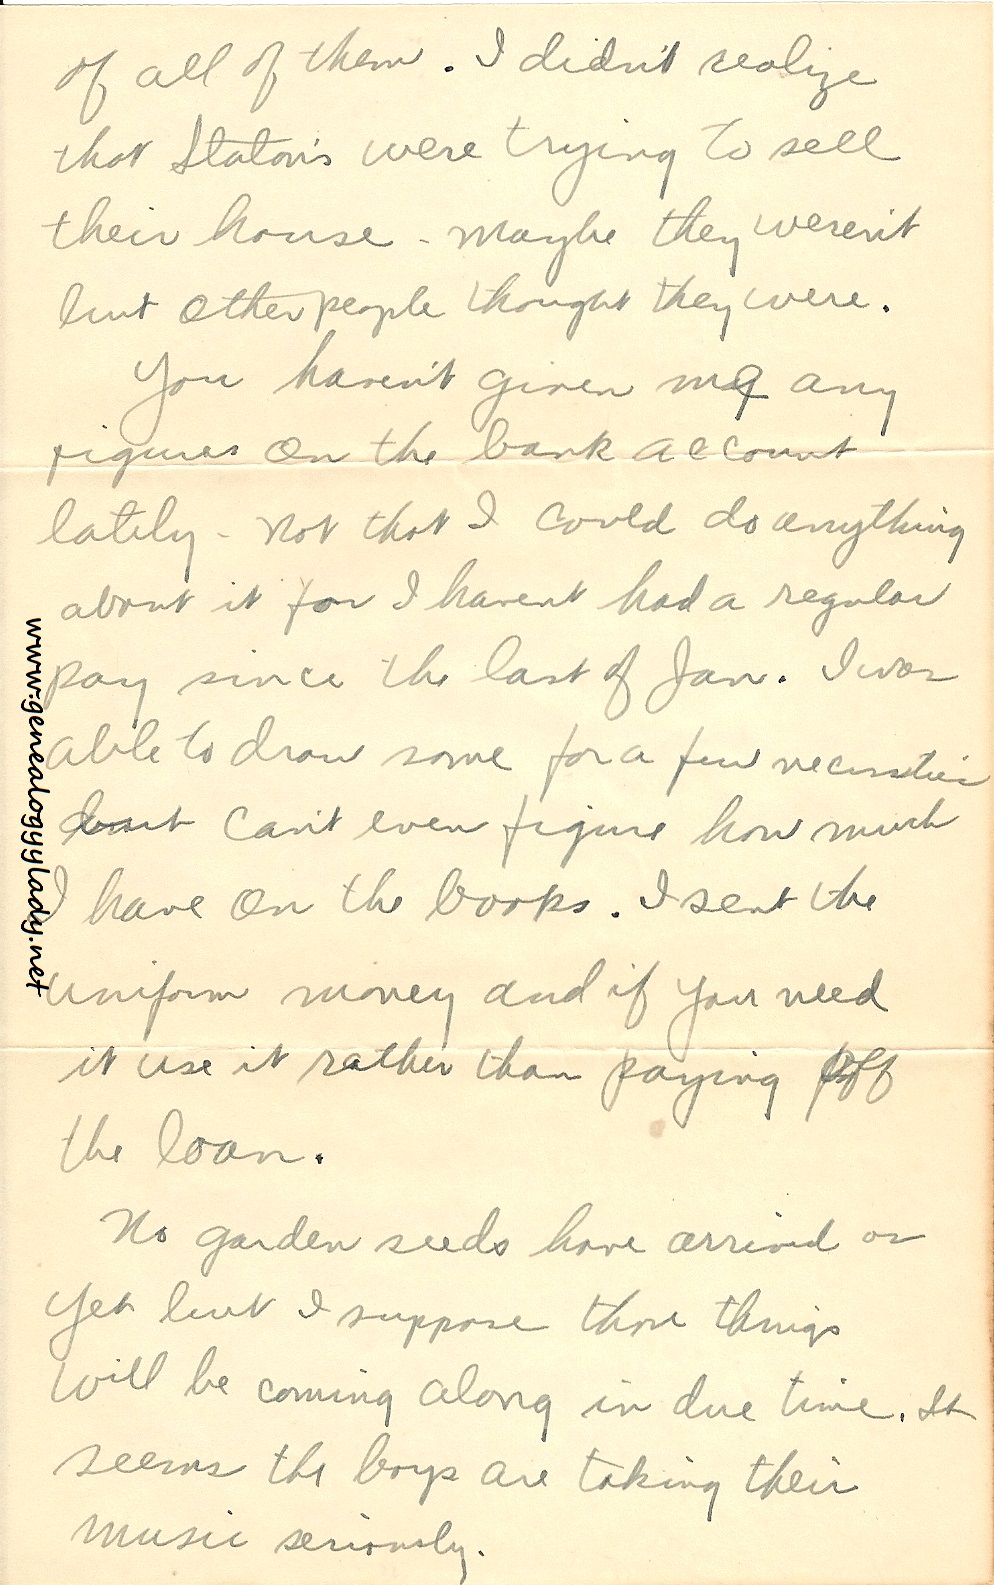 of all of them. I didn't realize
that Staton's were trying to sell
their house - maybe they weren't
but other people thought they were.
You haven't given me any
figures on the bank account
lately - not that I could do anything
about it for I haven't had a regular
pay since the last of Jan. I was
able to draw some for a few necessities
but can't even figure how much
I have on the books. I sent the
uniform money and if you need
it use it rather than paying off
the loan.
No garden seeds have arrived as
yet but I suppose those things
will be coming along in due time. It
seems the boys are taking their
music seriously.
www.genealogylady.net